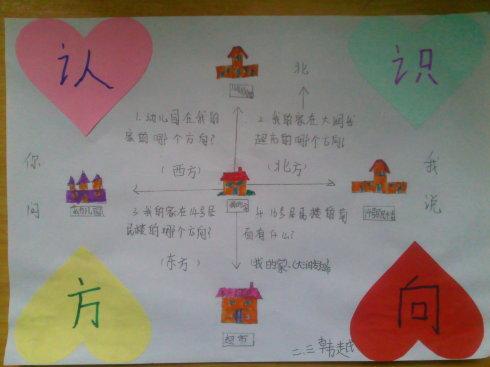 认
识
北
1. 幼儿园在我的
家的哪个方向?
(西方)
2. 我的家在大润发
超市的哪个方向?
(北方)
你
问
我
说
我的家
3. 我的家在14号居
民楼的哪个方向?
(东方)
4. 16号居民楼的南
面有什么?
(我的家、大润发超市
方
向
超市
二.三韩越